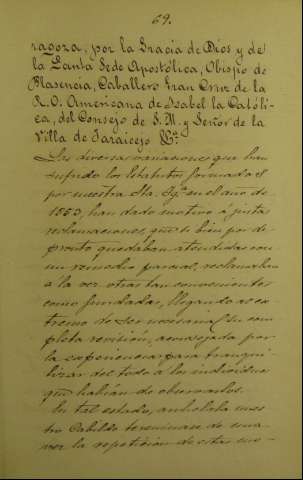 69.
ragoza, por la Gracia de Dios y de
la Santa Sede Apostólica, Obispo de
Plasencia, Caballero Gran Cruz de la
R. O. Americana de Isabel la Católi-
ca, del Consejo de S. M. y Señor de la
Villa de Jaraicejo &ª.
Las diversas variaciones que han
sufrido los Estatutos formados
por nuestra Sta. Igª en el año de
1553, han dado motivo á justas
reclamaciones, que si bien por de
pronto quedaban atendidas con
un remedio parcial, reclamaban
a la vez otras tan convenientes
como fundadas, llegando al es-
tremo de ser necesaria su com-
pleta revision, aconsejada por
la esperiencia para tranqui-
lizar del todo a los individuos
que habían de observarlos.
En tal estado, anhelaba nues-
tro Cabildo
ver la repeticion de estas